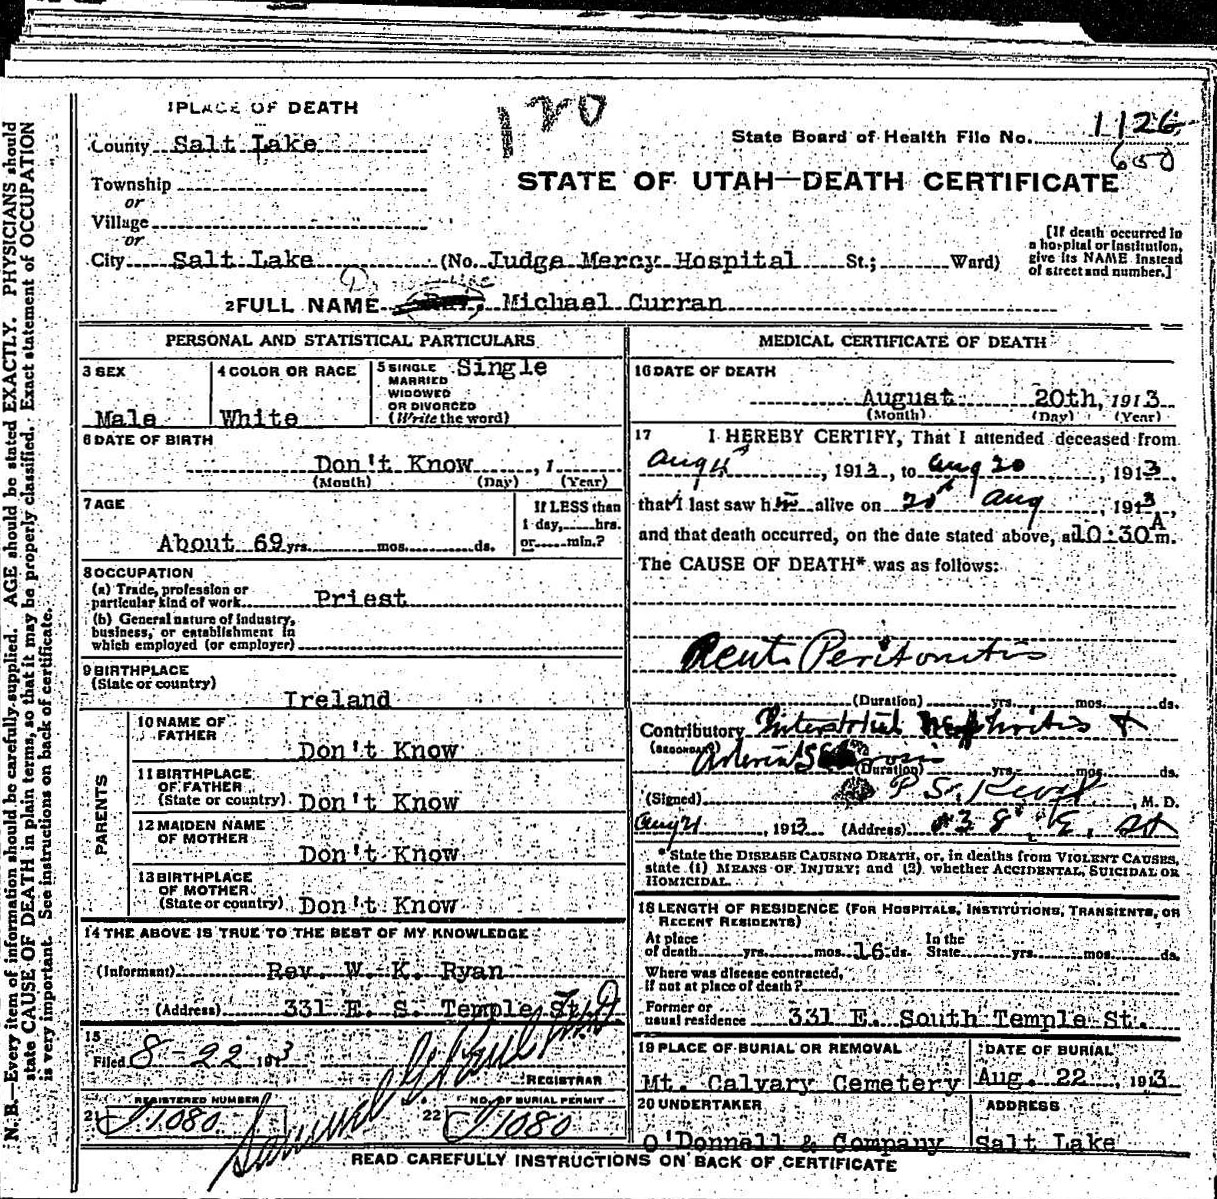 N.B.—Every item of information should be carefully supplied. AGE should be stated EXACTLY. PHYSICIANS should
state CAUSE OF DEATH in plain terms, so that it may be properly classified. Exact statement of OCCUPATION
is very important. See instructions on back of certificate.
1 PLACE OF DEATH
120
State Board of Health File No. 1126
650
County Salt Lake
STATE OF UTAH—DEATH CERTIFICATE
Township
or
Village
or
City Salt Lake (No. Judge Mercy Hospital St.; Ward)
[If death occurred in
a hospital or institution,
give its NAME instead
of street and number.]
2 FULL NAME Michael Curran
PERSONAL AND STATISTICAL PARTICULARS
3 SEX
Male
4 COLOR OR RACE
White
5 SINGLE Single
MARRIED
WIDOWED
OR DIVORCED
(Write the word)
6 DATE OF BIRTH
Don't Know, 1
(Month) (Day) (Year)
7 AGE
About 69 yrs. mos. ds.
If LESS than
1 day, hrs.
or min.?
8 OCCUPATION
(a) Trade, profession or
particular kind of work Priest
(b) General nature of industry,
business, or establishment in
which employed (or employer)
9 BIRTHPLACE
(State or country)
Ireland
PARENTS
10 NAME OF
FATHER
Don't Know
11 BIRTHPLACE
OF FATHER
(State or country) Don't Know
12 MAIDEN NAME
OF MOTHER
Don't Know
13 BIRTHPLACE
OF MOTHER
(State or country) Don't Know
14 THE ABOVE IS TRUE TO THE BEST OF MY KNOWLEDGE
(Informant) Rev. W. K. Ryan
(Address) 331 E. S. Temple St.
15
Filed 8-22 1913
REGISTRAR
REGISTERED NUMBER
21 1080
NO. OF BURIAL PERMIT
22 1080
MEDICAL CERTIFICATE OF DEATH
16 DATE OF DEATH
August 20th, 1913
(Month) (Day) (Year)
17 I HEREBY CERTIFY, That I attended deceased from
Aug, 1913, to Aug 20, 1913,
that I last saw h alive on 20th Aug, 1913,
and that death occurred, on the date stated above, at 10:30 A m.
The CAUSE OF DEATH* was as follows:
Acute Peritonitis
(Duration) yrs. mos. ds.
Contributory Interstitial Nephritis &
(SECONDARY)
(Duration) yrs. mos. ds.
(Signed), M. D.
Aug 21, 1913 (Address)
*State the DISEASE CAUSING DEATH, or, in deaths from VIOLENT CAUSES,
state (1) MEANS OF INJURY; and (2) whether ACCIDENTAL, SUICIDAL OR
HOMICIDAL.
18 LENGTH OF RESIDENCE (FOR HOSPITALS, INSTITUTIONS, TRANSIENTS, OR
RECENT RESIDENTS)
At place
of death yrs. mos. 16 ds.
In the
State yrs. mos. ds.
Where was disease contracted,
if not at place of death?
Former or
usual residence 331 E. South Temple St.
19 PLACE OF BURIAL OR REMOVAL
Mt. Calvary Cemetery
DATE OF BURIAL
Aug. 22, 1913
20 UNDERTAKER
O'Donnell & Company
ADDRESS
Salt Lake
READ CAREFULLY INSTRUCTIONS ON BACK OF CERTIFICATE